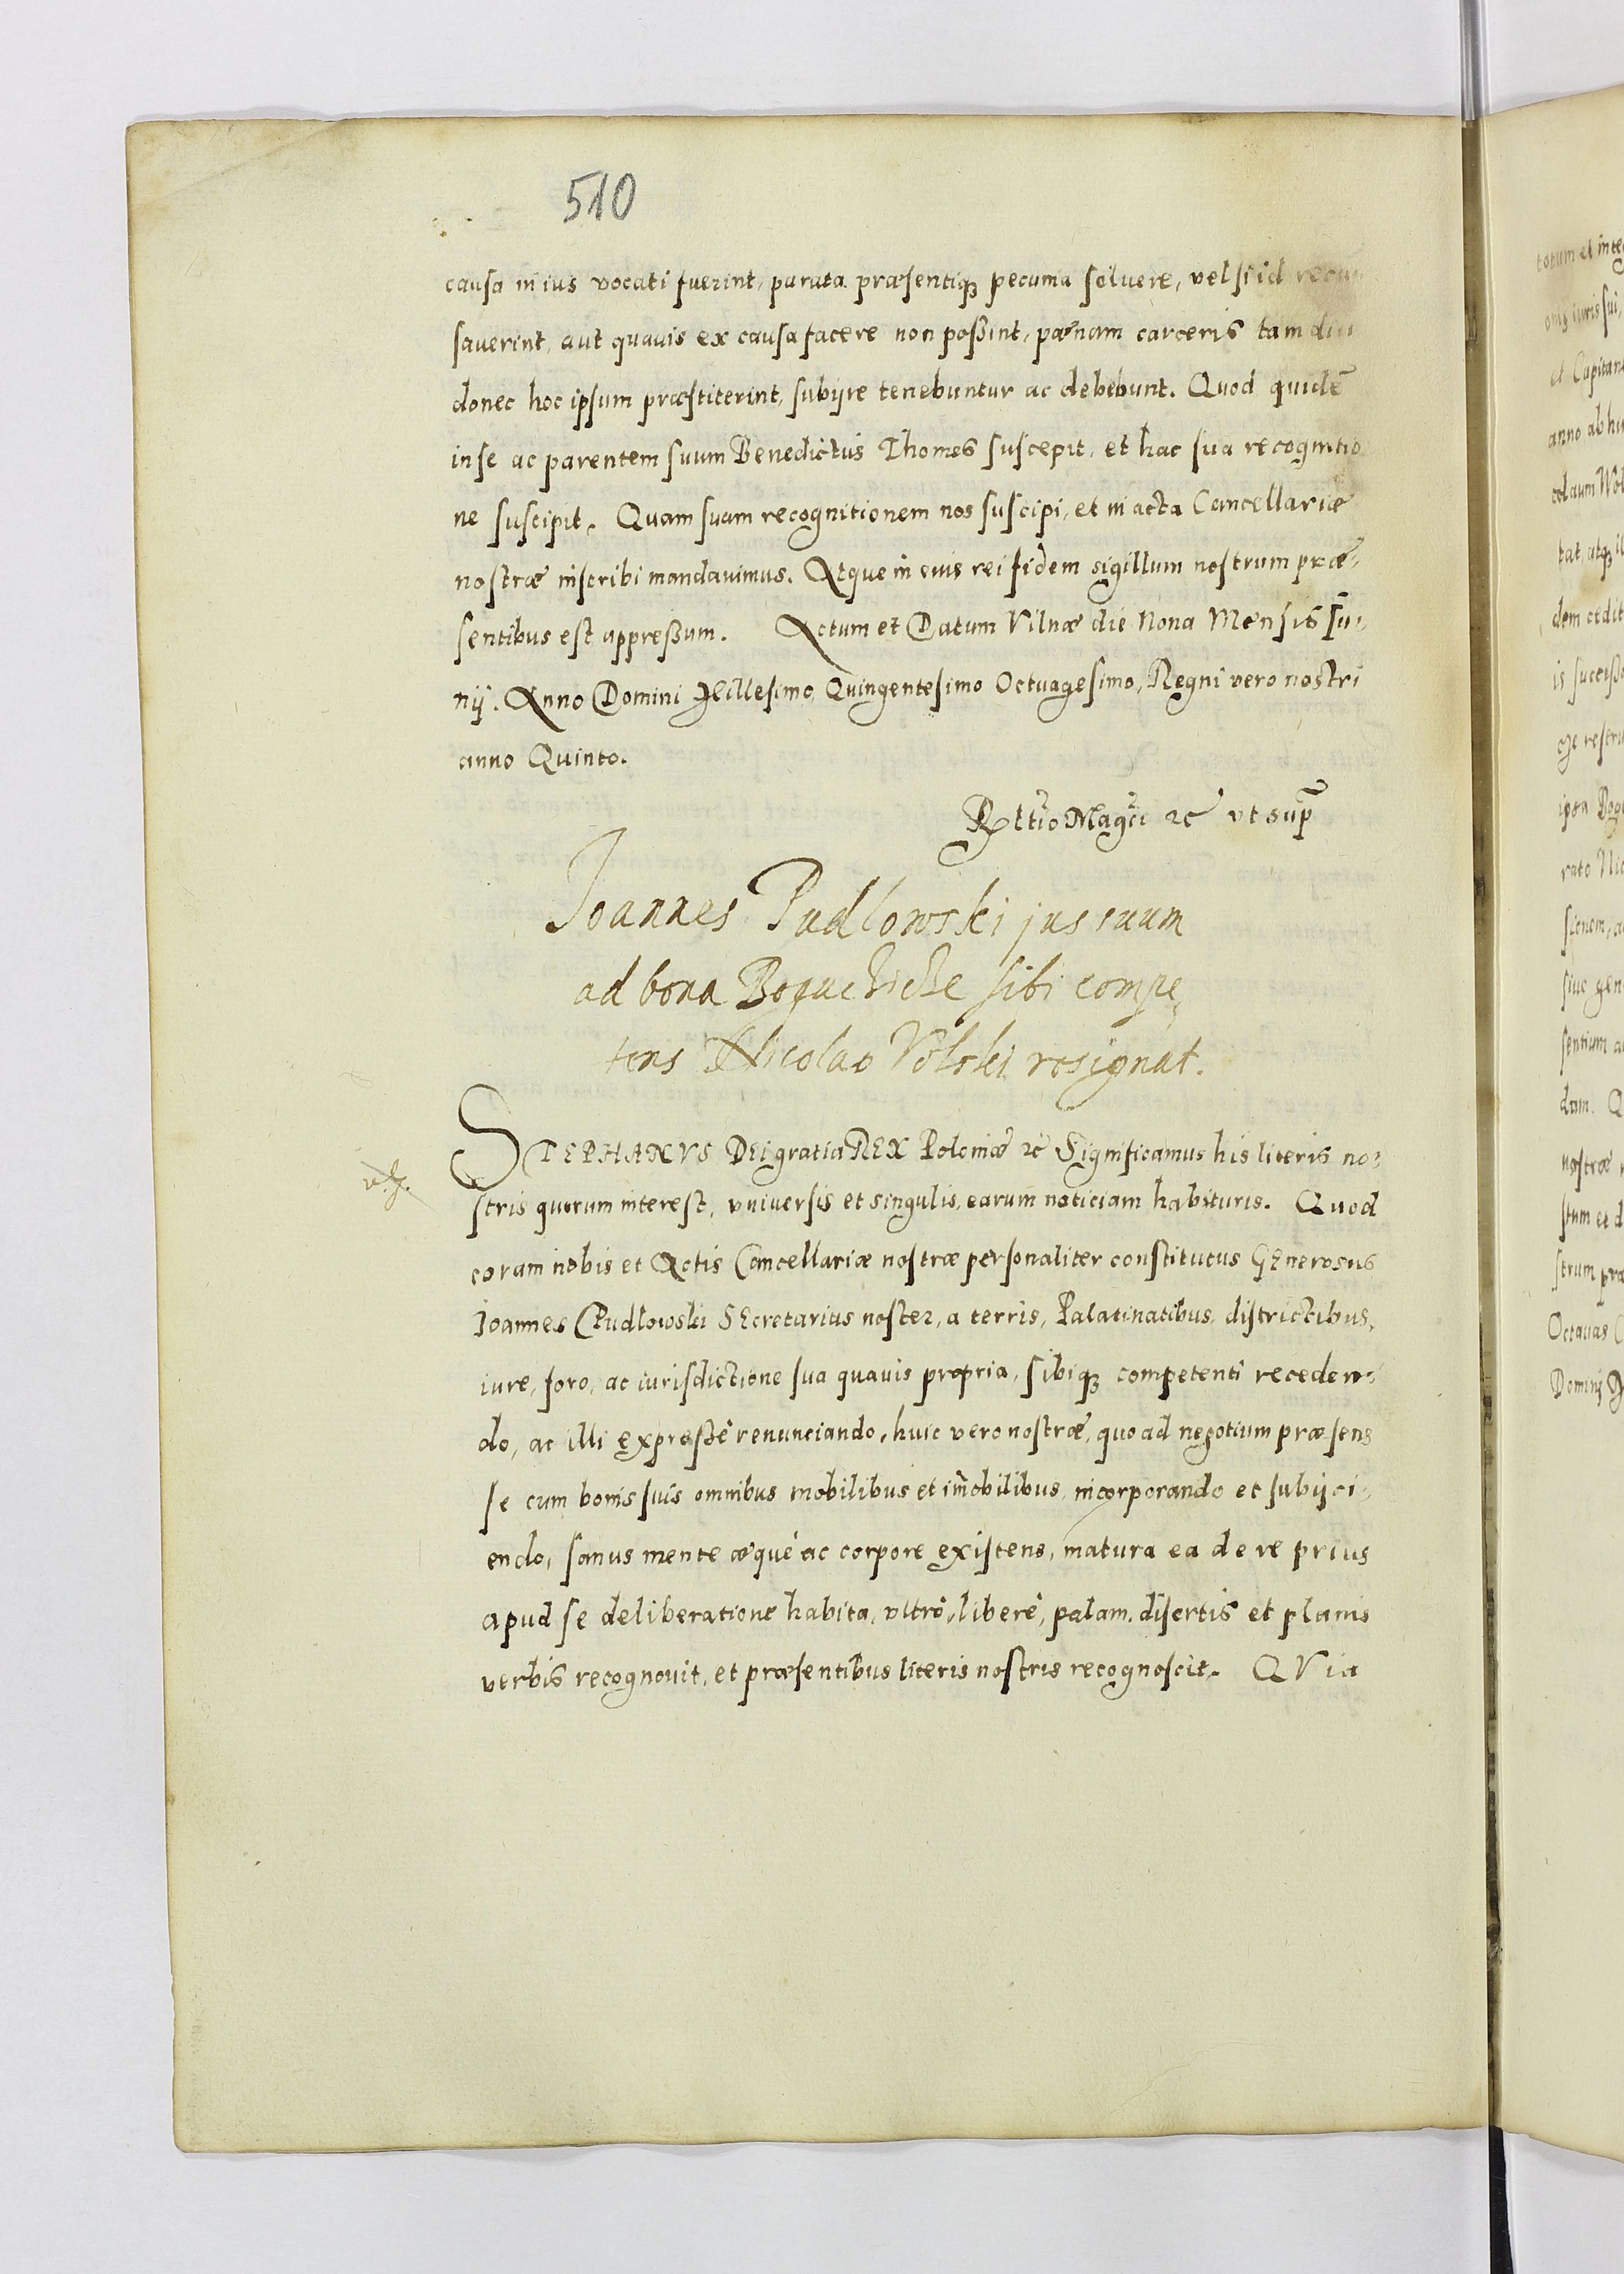 510
causa in ius vocati fuerint, parata præsentiq; pecunia soluere, vel si id recu
sauerint, aut quauis ex causa facere non possint, pœnam carceris tam diu
donec hoc ipsum præstiterint, subijre tenebuntur ac debebunt. Quod quidē
in se ac parentem suum Benedictus Thomes suscepit, et hac sua recognitio
ne suscipit. Quam suam recognitionem nos suscipi, et in acta Cancellariæ
nostræ inscribi mandauimus. Atque in euis rei fidem sigillum nostrum præ-
sentibus est appressum. Actum et Datum Vilnæ die Nona Mensis Iu-
nij. Anno Domini Millesimo Quingentesimo Octuagesimo, Regni vero nostri
anno Quinto.
Rltio Magci &c vt sup
Joannes Pudlowski jus suum
ad bona Boguchicze sibi compe
tens Nicolao Volski resignat.
STEPHANVS DEI gratia REX Poloniæ &c Significamus his literis no-
stris quorum interest, vniuersis et singulis, earum noticiam habituris. Quod
coram nobis et Actis Cancellariæ nostræ personaliter constitutus GEnerosus
Ioannes Pudlowski SEcretarius noster, a terris, Palatinatibus, districtibus,
iure, foro, ac iurisdictione sua quauis propria, sibiq; competenti receden-
do, ac illi expressè renunciando, huic vero nostræ, quo ad negotium præsens
se cum bonis suis omnibus mobilibus et im̄obilibus incorporando et subijci-
endo, sanus mente æquè ac corpore existens, matura ea de re prius
apud se deliberatione habita, vltrò, liberè, palam, disertis et planis
verbis recognouit, et præsentibus literis nostris recognoscit. QVia
totum et inte
iuris sui,
et Capitan
anno ab hi
colaum Wol
tat, atq; il
dem cedit
is success
ipsa Bog
rato Nic
sionem, a
siue gen
sentium a
dam. Q
nostræ
stum et d
strum præ
Octauas
Domini